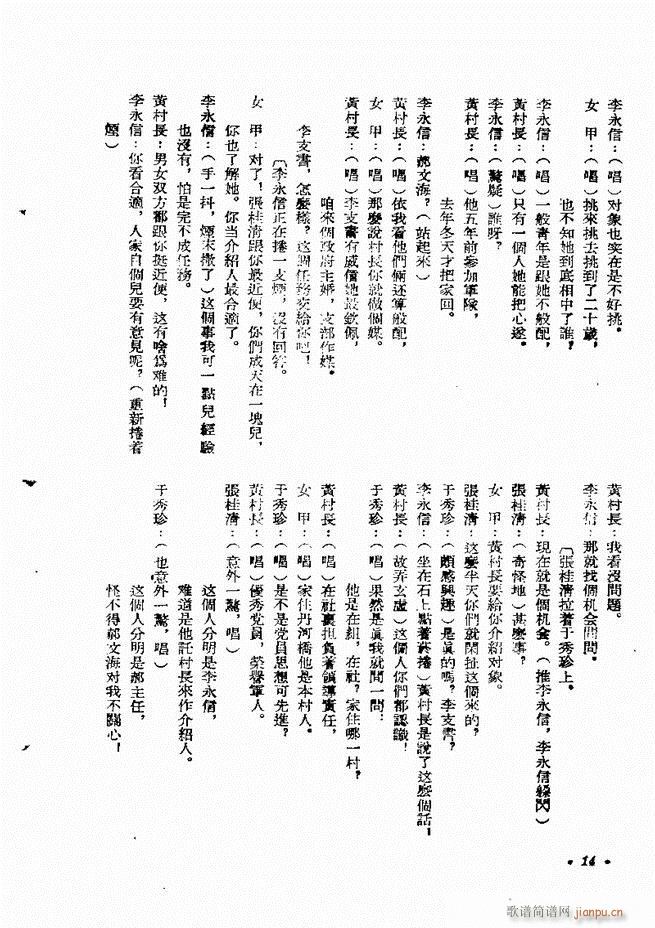 李永信：（唱）对象也实在是不好挑。
女　甲：（唱）挑來挑去挑到了二十歲，
也不知她到底相中了誰？
李永信：（唱）一般青年是跟她不般配，
黃村長：（唱）只有一個人她能把心遂。
李永信：（驚疑）誰呀？
黃村長：（唱）他五年前參加軍隊，
去年冬天才把家回。
李永信：郝文海？（站起來）
黃村長：（唱）依我看他們倆还算般配，
女　甲：（唱）那麼說村長你就做個媒。
黃村長：（唱）李支書有威信她最欽佩，
咱來個政府主婚，支部作媒。
李支書，怎麼樣？這個任務交給你吧！
〔李永信正在捲一支煙，沒有回答。
女　甲：对了！張桂清跟你最近便，你們成天在一塊兒，
你也了解她。你当介紹人最合適了。
李永信：（手一抖，煙末撒了）這個事我可一點兒經驗
也沒有，怕是完不成任務。
黃村長：男女双方都跟你挺近便，這有啥爲难的！
李永信：你看合適，人家自個兒要有意見呢？（重新捲着
煙）
黃村長：我看沒問題。
李永信：那就找個机会問問。
〔張桂清拉着于秀珍上。
黃村長：現在就是個机会。（推李永信，李永信躲閃）
張桂清：（奇怪地）甚麼事？
女　甲：黃村長要給你介紹对象。
張桂清：這麼半天你們就閑扯這個來的？
于秀珍：（頗感興趣）是真的嗎？李支書？
李永信：（坐在石上點着菸捲）黃村長是說了这麼個話！
黃村長：（故弄玄虛）这個人你們都認識！
于秀珍：（唱）果然是真我就問一問：
他是在組，在社？家住哪一村？
黃村長：（唱）在社裏担負着領導責任，
女　甲：（唱）家住丹河橋他是本村人。
于秀珍：（唱）是不是党員思想可先進？
黃村長：（唱）優秀党員，榮譽軍人。
張桂清：（意外一驚，唱）
这個人分明是李永信，
难道是他託村長來作介紹人。
于秀珍：（也意外一驚，唱）
这個人分明是郝主任，
怪不得郝文海对我不關心！
·14·
歌谱简谱网
jianpu.cn